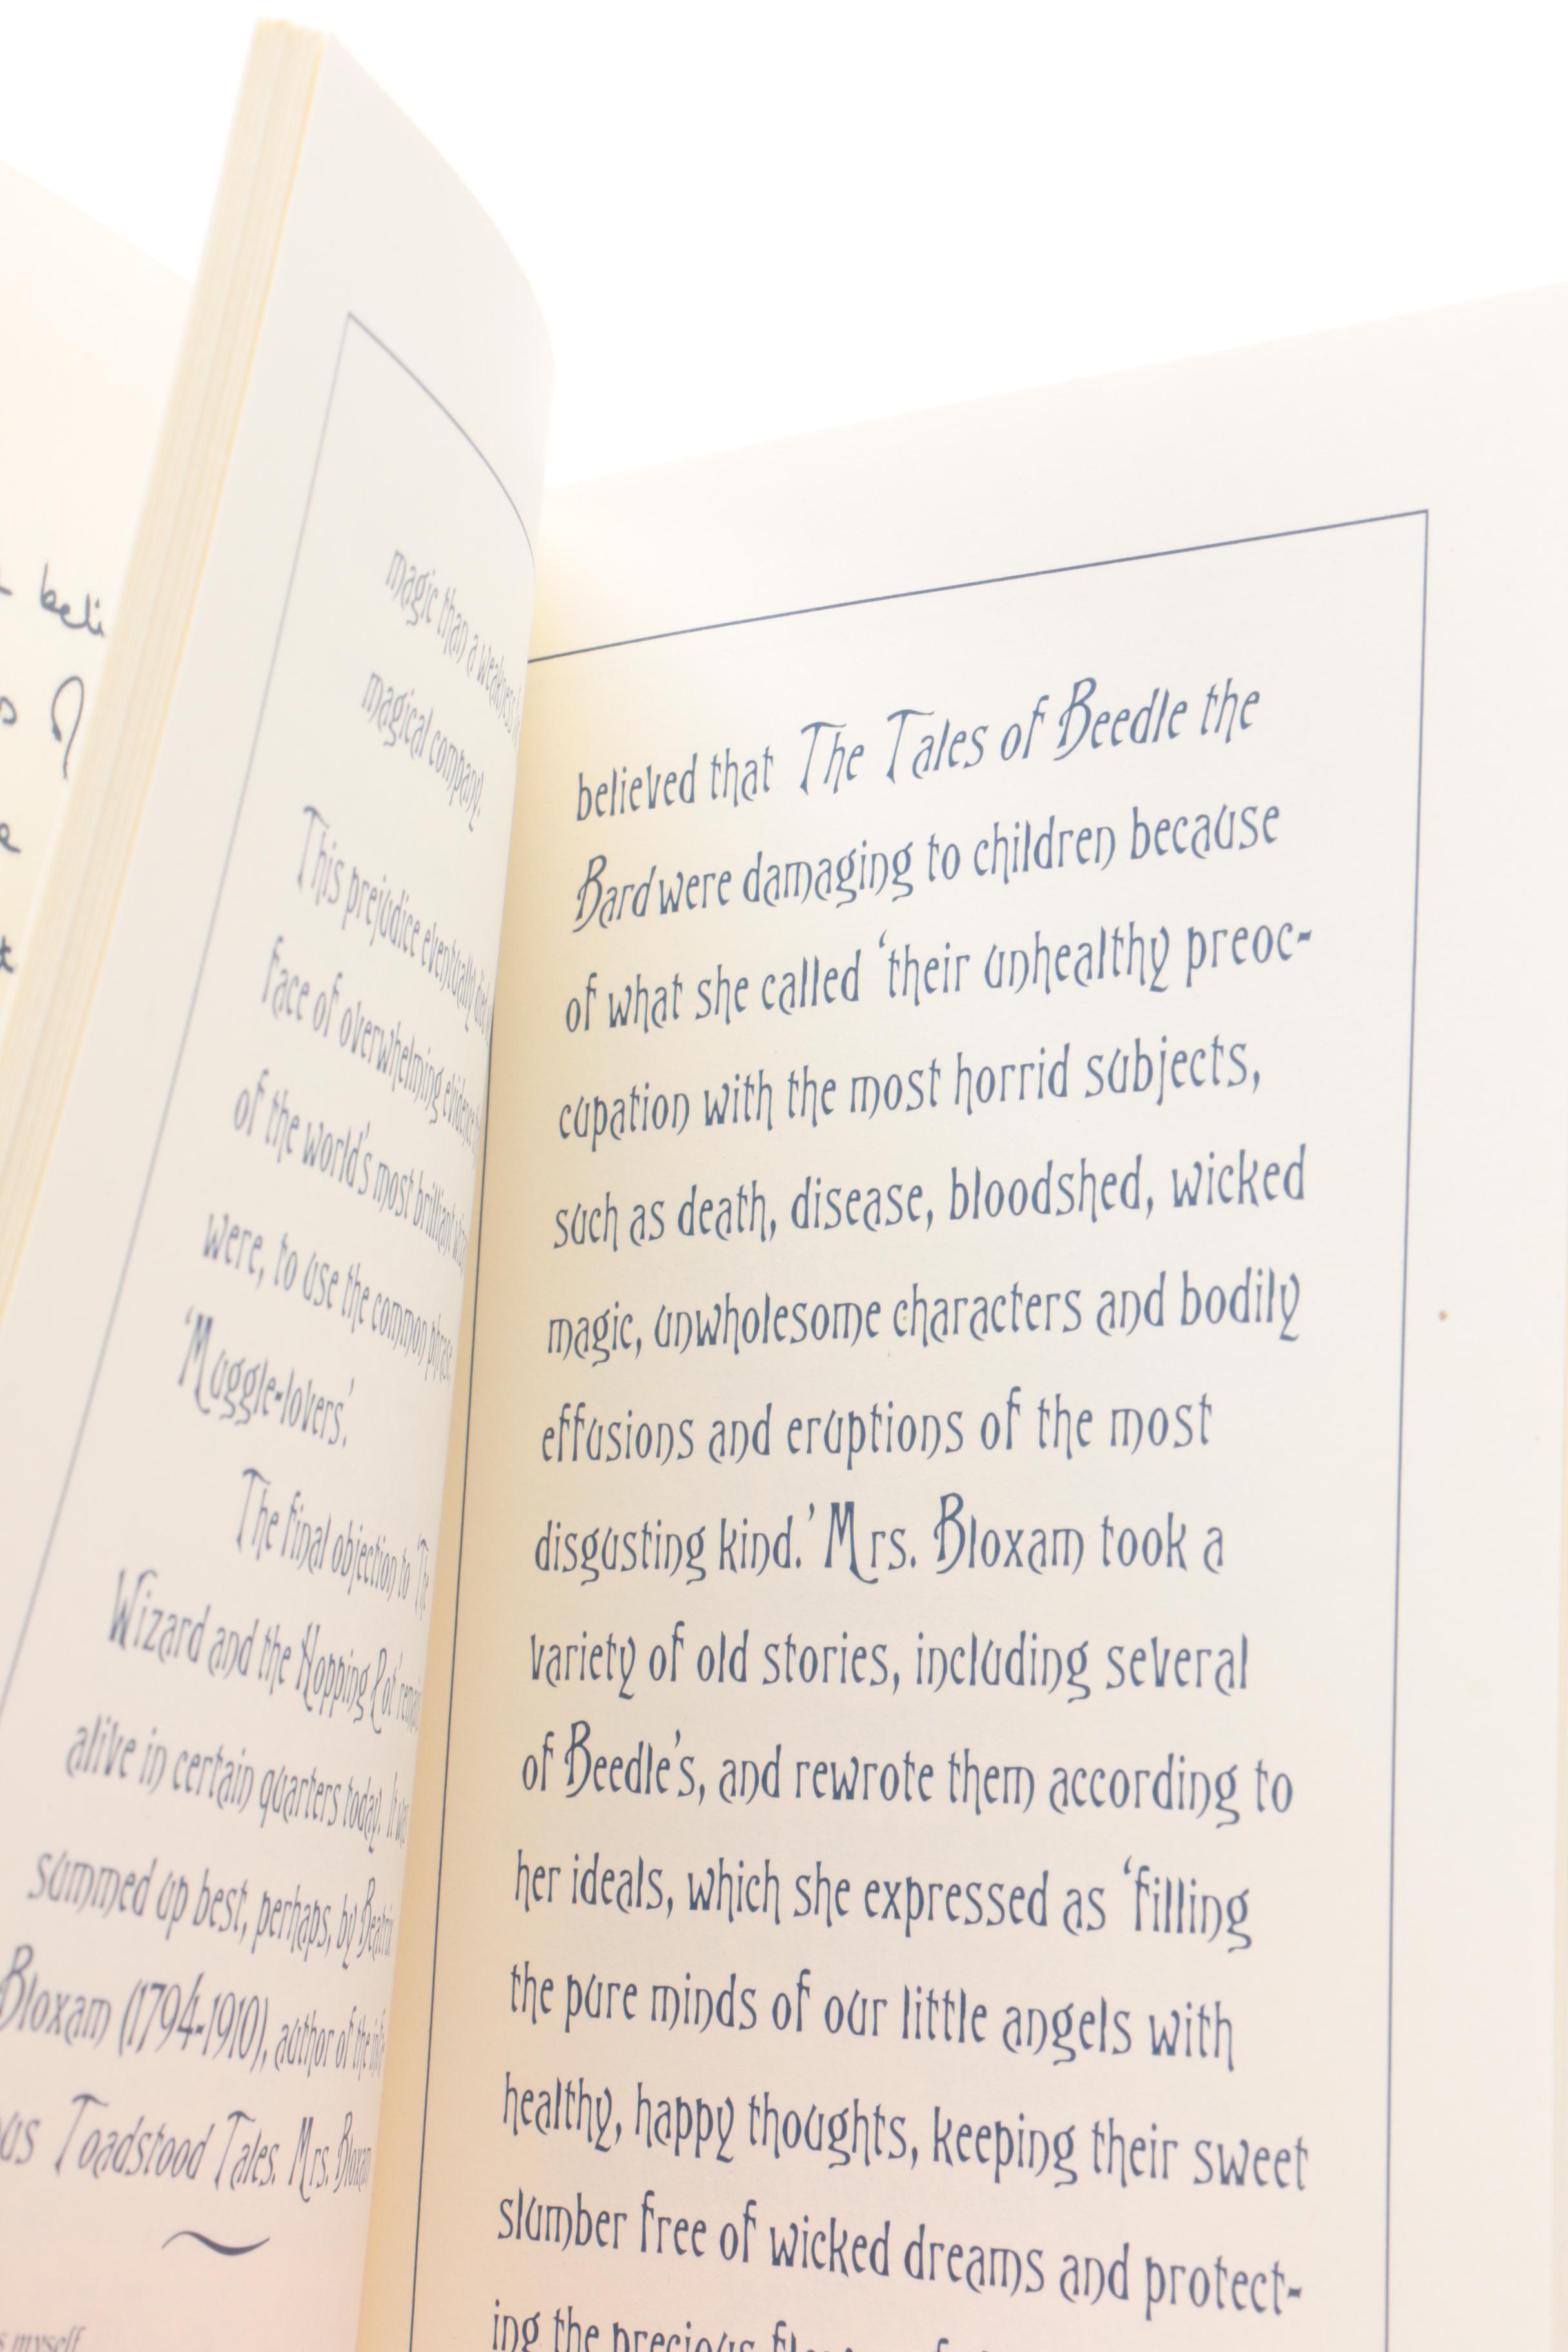 beli
magic than a weakness
magical company.
This prejudice eventually
face of overwhelming evidence
of the world's most brilliant
were, to use the common phrase
'Muggle-lovers'.
The final objection to 'The
Wizard and the Hopping Pot'
alive in certain quarters today. It was
summed up best, perhaps, by Beatrix
Bloxam (1794-1910), author of the
Toadstood Tales. Mrs. Bloxam
myself
believed that The Tales of Beedle the
Bard were damaging to children because
of what she called 'their unhealthy preoc-
cupation with the most horrid subjects,
such as death, disease, bloodshed, wicked
magic, unwholesome characters and bodily
effusions and eruptions of the most
disgusting kind.' Mrs. Bloxam took a
variety of old stories, including several
of Beedle's, and rewrote them according to
her ideals, which she expressed as 'filling
the pure minds of our little angels with
healthy, happy thoughts, keeping their sweet
slumber free of wicked dreams and protect-
ing the precious